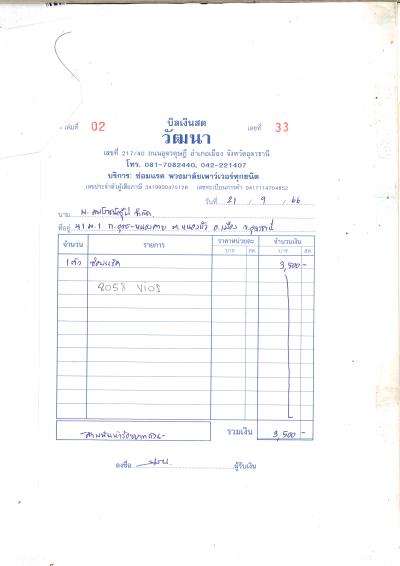 บิลเงินสด
เล่มที่ 02 เลขที่ 33
วัฒนา
เลขที่ 217/40 ถนนอุดรดุษฎี อำเภอเมือง จังหวัดอุดรธานี
โทร. 081-7082440, 042-221407
บริการ: ซ่อมแรค พวงมาลัยเพาเวอร์ทุกชนิด
เลขประจำตัวผู้เสียภาษี 3419900475126 เลขทะเบียนการค้า 0417114704852
วันที่ 21 / 9 / 66
นาม จำกัด
ที่อยู่ 41 ม.1 ถ.อุดร-หนองคาย ต.หมากแข้ง อ.เมือง จ.อุดรธานี
จำนวน รายการ ราคาหน่วยละ จำนวนเงิน
บาท สต. บาท สต.
1 ตัว ซ่อมแร็ค 3,500 -
8058 Vios
-สามพันห้าร้อยบาทถ้วน- รวมเงิน 3,500 -
ลงชื่อ ผู้รับเงิน